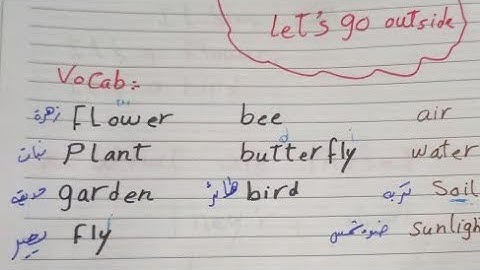 Let's go outside
Vocab:-
زهرة flower bee air
نبات Plant butterfly water
حديقة garden طائر bird تربة Soil
يطير fly ضوء شمس sunligh